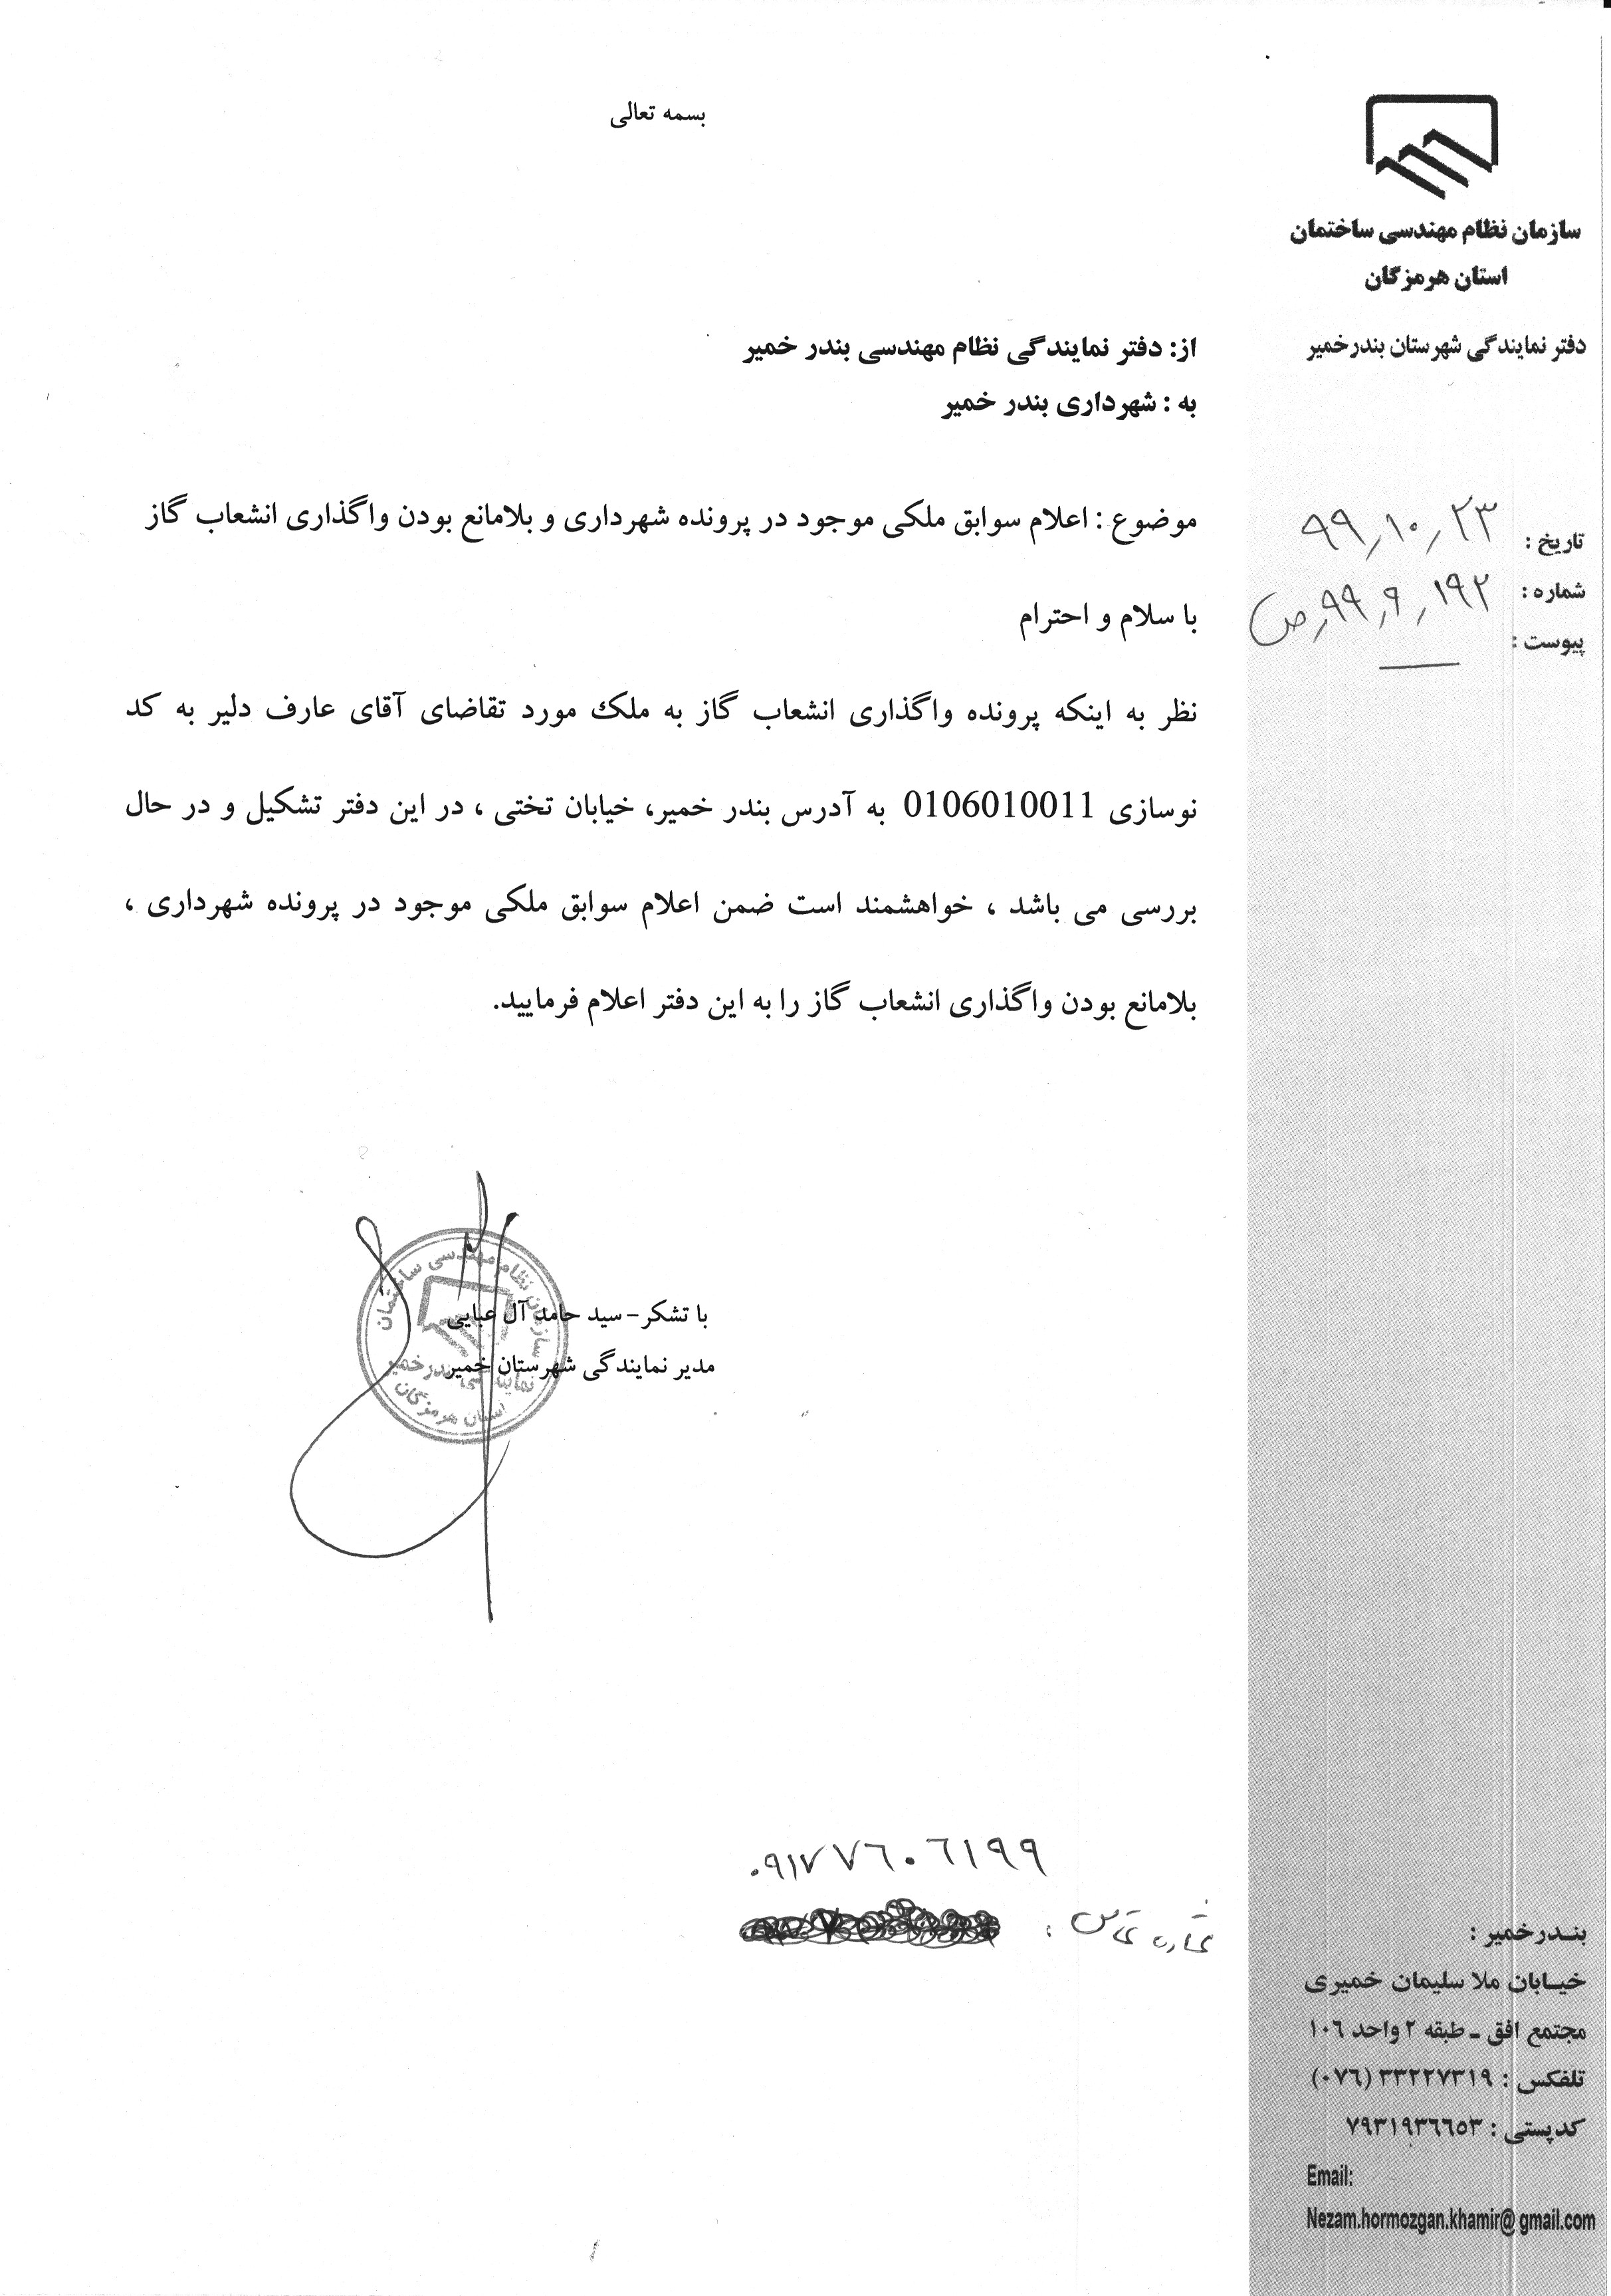 بسمه تعالی
سازمان نظام مهندسی ساختمان
استان هرمزگان
دفتر نمایندگی شهرستان بندرخمیر
تاریخ : ۹۹٫۱۰٫۲۳
شماره : ۱۹۲٫۹٫۹۹٫ص
پیوست : —
از: دفتر نمایندگی نظام مهندسی بندر خمیر
به : شهرداری بندر خمیر
موضوع : اعلام سوابق ملکی موجود در پرونده شهرداری و بلامانع بودن واگذاری انشعاب گاز
با سلام و احترام
نظر به اینکه پرونده واگذاری انشعاب گاز به ملک مورد تقاضای آقای عارف دلیر به کد
نوسازی 0106010011 به آدرس بندر خمیر، خیابان تختی ، در این دفتر تشکیل و در حال
بررسی می باشد ، خواهشمند است ضمن اعلام سوابق ملکی موجود در پرونده شهرداری ،
بلامانع بودن واگذاری انشعاب گاز را به این دفتر اعلام فرمایید.
با تشکر – سید حامد آل عبایی
مدیر نمایندگی شهرستان خمیر
سازمان نظام مهندسی ساختمان
نمایندگی بندرخمیر
استان هرمزگان
۰۹۱۷۷۶۰۶۱۹۹
شماره تماس :
بنـدرخمیر :
خیـابان ملا سلیمان خمیری
مجتمع افق ـ طبقه ۲ واحد ۱۰۶
تلفکس : ۳۳۲۲۷۳۱۹ (۰۷۶)
کدپستی : ۷۹۳۱۹۳۶۶۵۳
Email:
Nezam.hormozgan.khamir@gmail.com